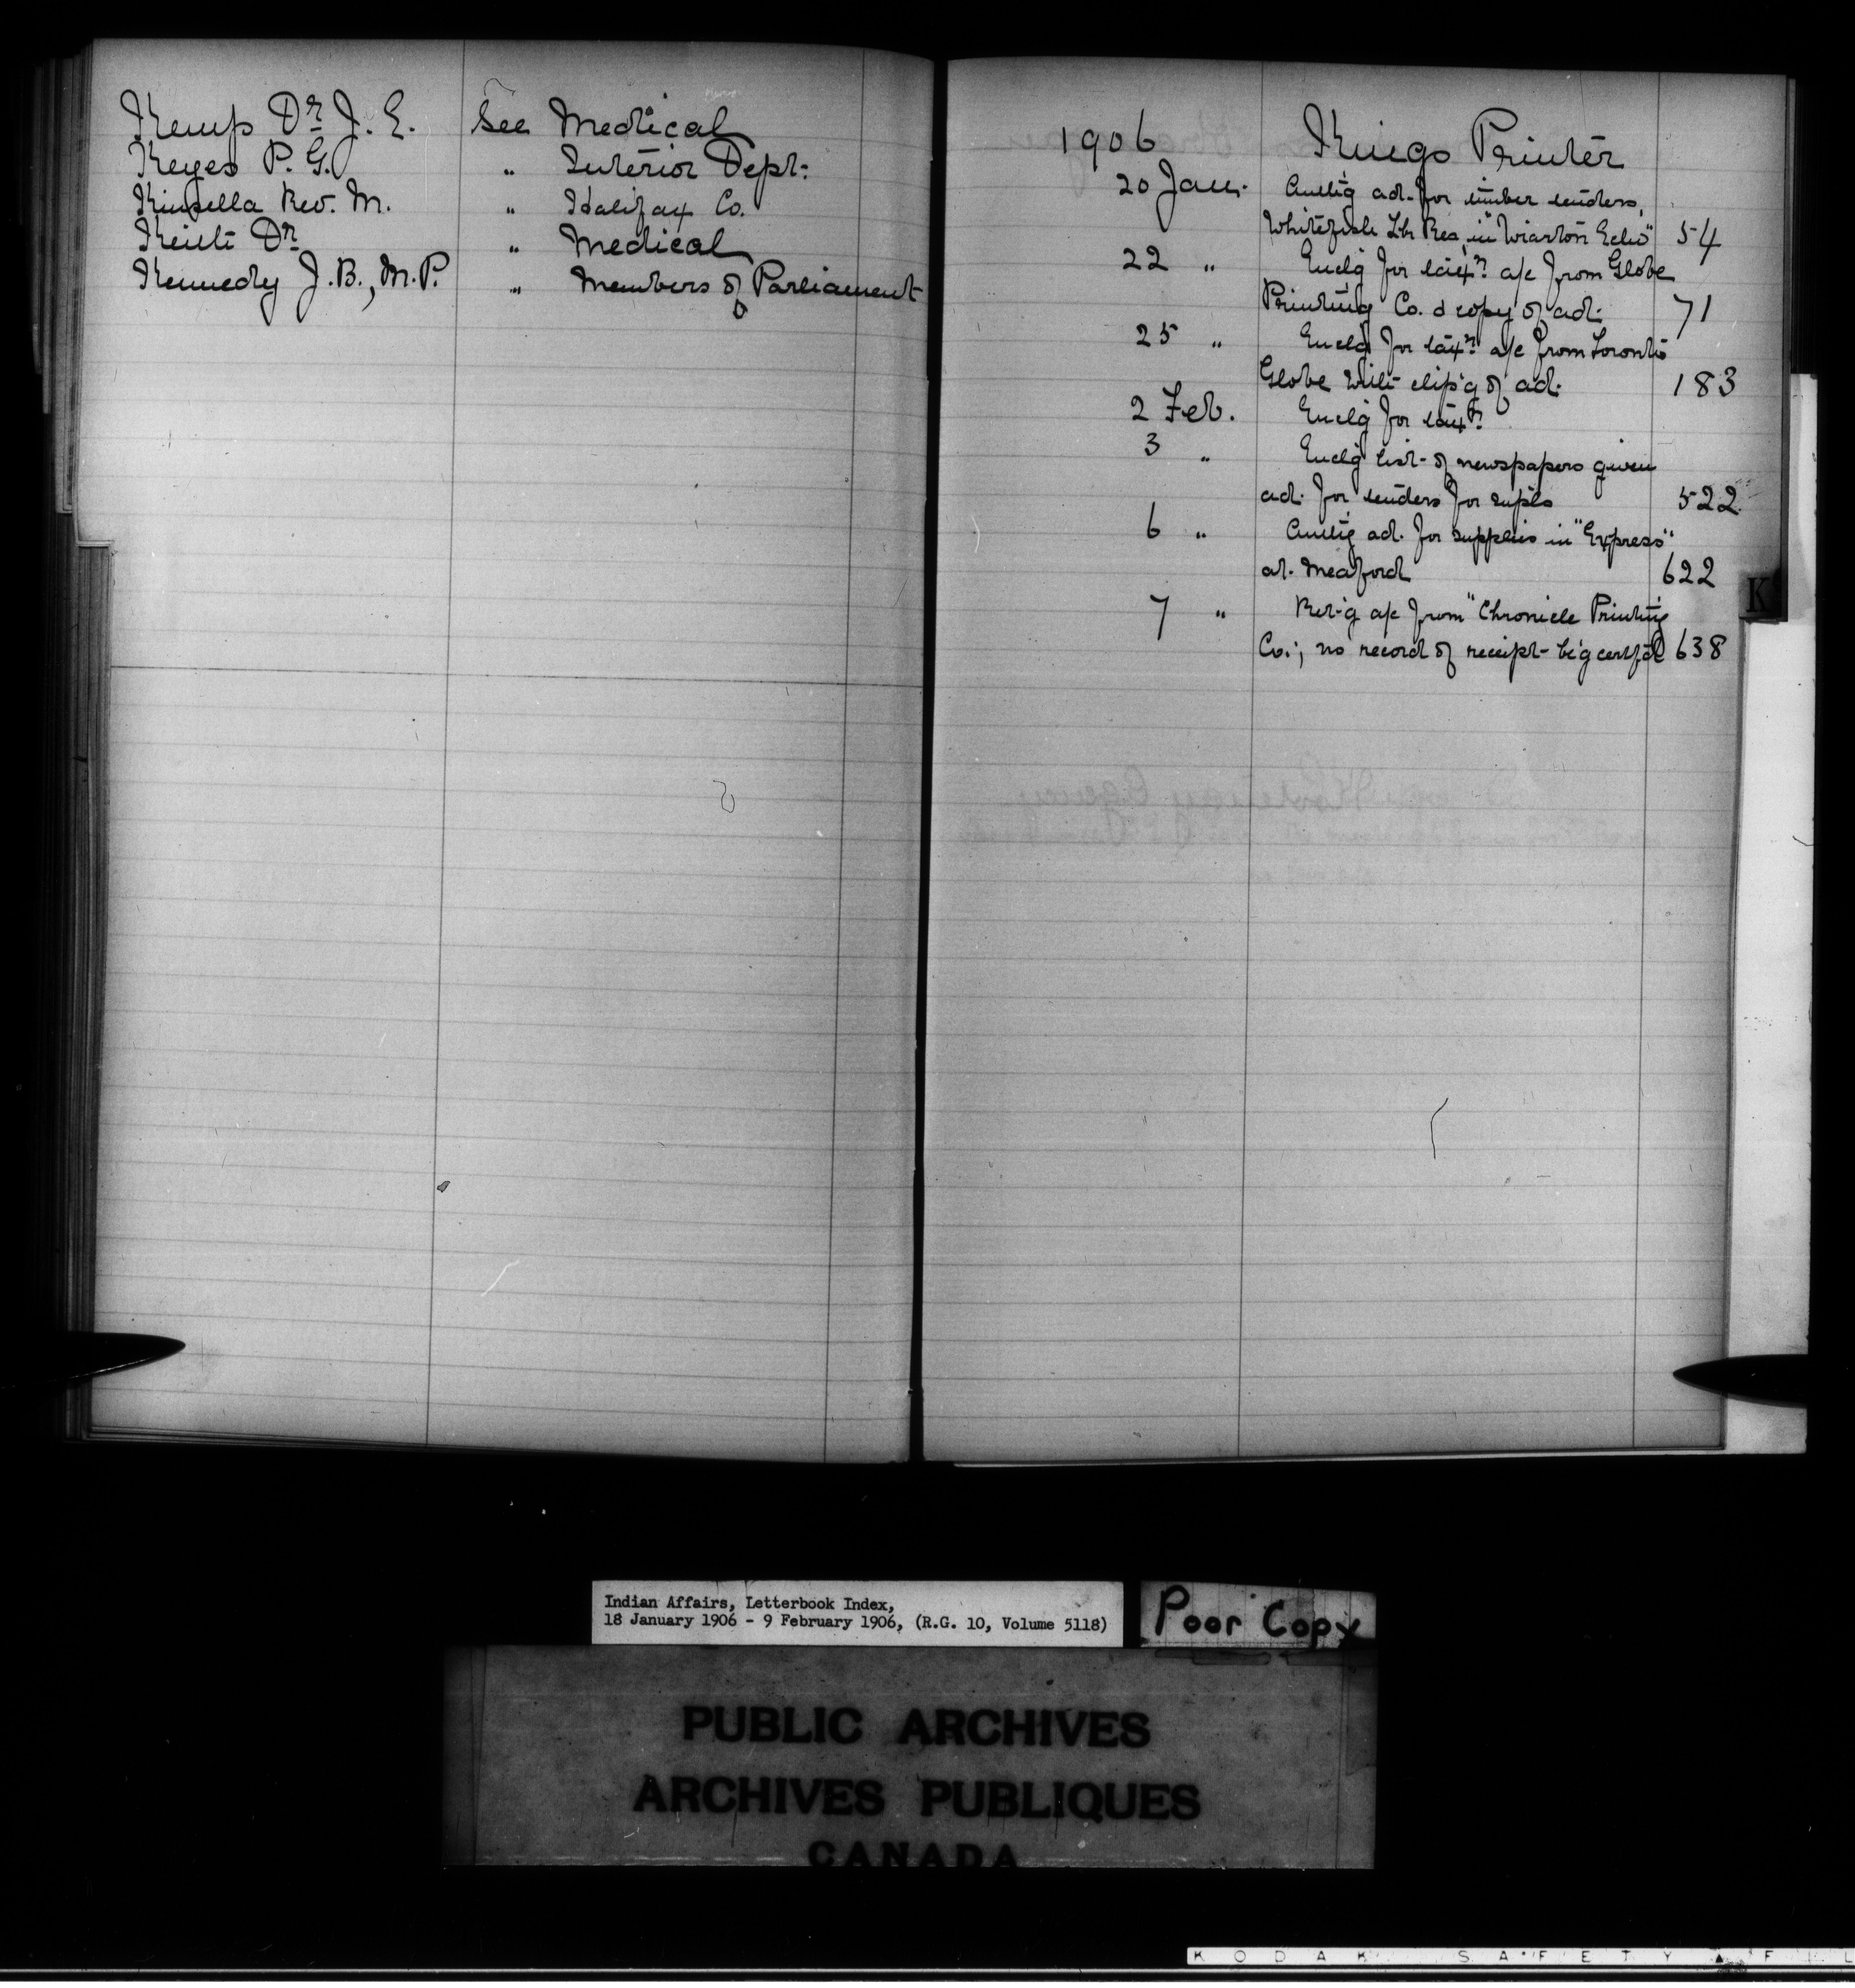 Kemp Dr J. E. See Medical
Keyes P. G. " Interior Dept.
Kinsella Rev. M. " Halifax Co.
Keith Dr " Medical
Kennedy J. B., M.P. " Members of Parliament
1906 Kings Printer
20 Jan. Authg ad. for timber tenders,
Whitefish Res, in "Wiarton Echo" 54
22 " Enclg for taxn a/c from Globe
Printing Co. & copy of ad. 71
25 " Enclg for taxn a/c from Toronto
Globe with clip'g of ad. 183
2 Feb. Enclg for taxn
3 " Enclg list of newspapers given
ad. for tenders for supls 522
6 " Authg ad. for supplies in "Express"
at Meaford 622
7 " Ret-g a/c from "Chronicle Printing
Co.; no record of receipt b'g certf'd 638
K
Indian Affairs, Letterbook Index,
18 January 1906 - 9 February 1906, (R.G. 10, Volume 5118)
Poor Copy
PUBLIC ARCHIVES
ARCHIVES PUBLIQUES
CANADA
KODAK SAFETY ▲ F L